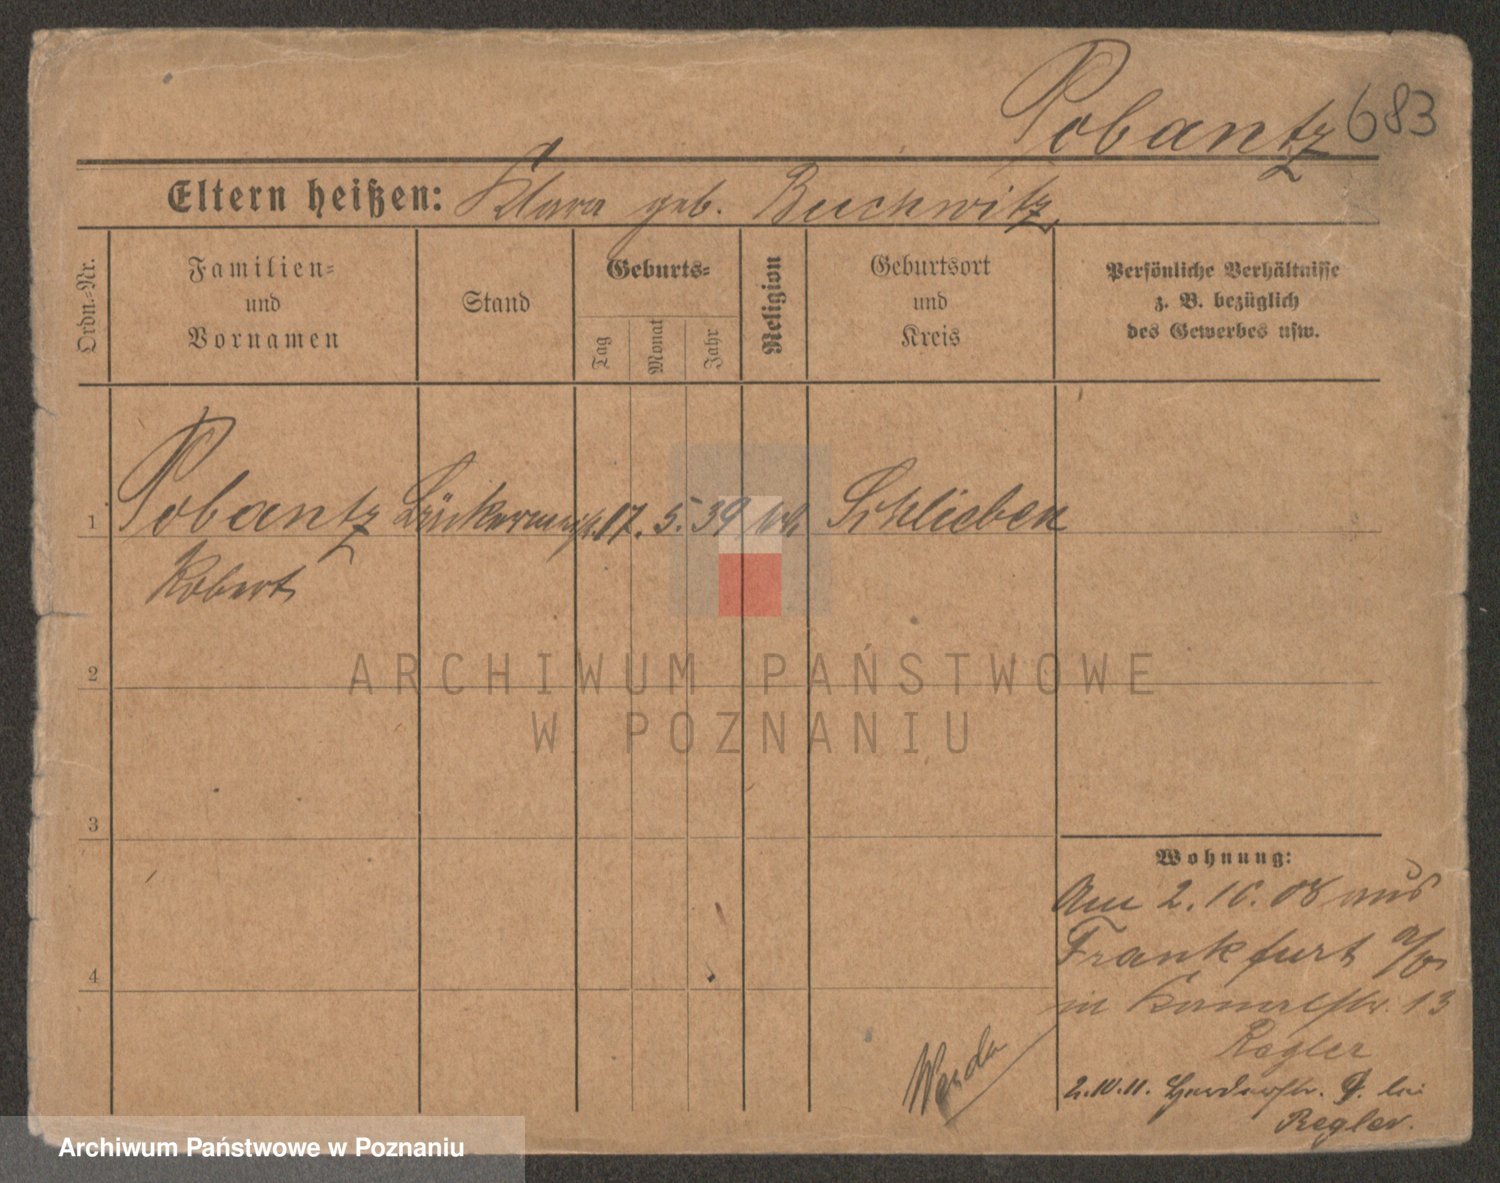 Pobantz 683
Eltern heißen: Klara geb. Buchwitz
Ordn.-Nr.
Familien-
und
Vornamen
Stand
Geburts-
Tag
Monat
Jahr
Religion
Geburtsort
und
Kreis
Persönliche Verhältnisse
z. B. bezüglich
des Gewerbes usw.
1 Pobantz Bäckermeist. 17. 5. 39 Schlieben
Robert
2
ARCHIWUM PAŃSTWOWE
W POZNANIU
3
Wohnung:
Am 2. 10. 08 aus
Frankfurt a/O
4
in Kanalstr. 13
Regler
2.10.11. bei
Regler.
Archiwum Państwowe w Poznaniu